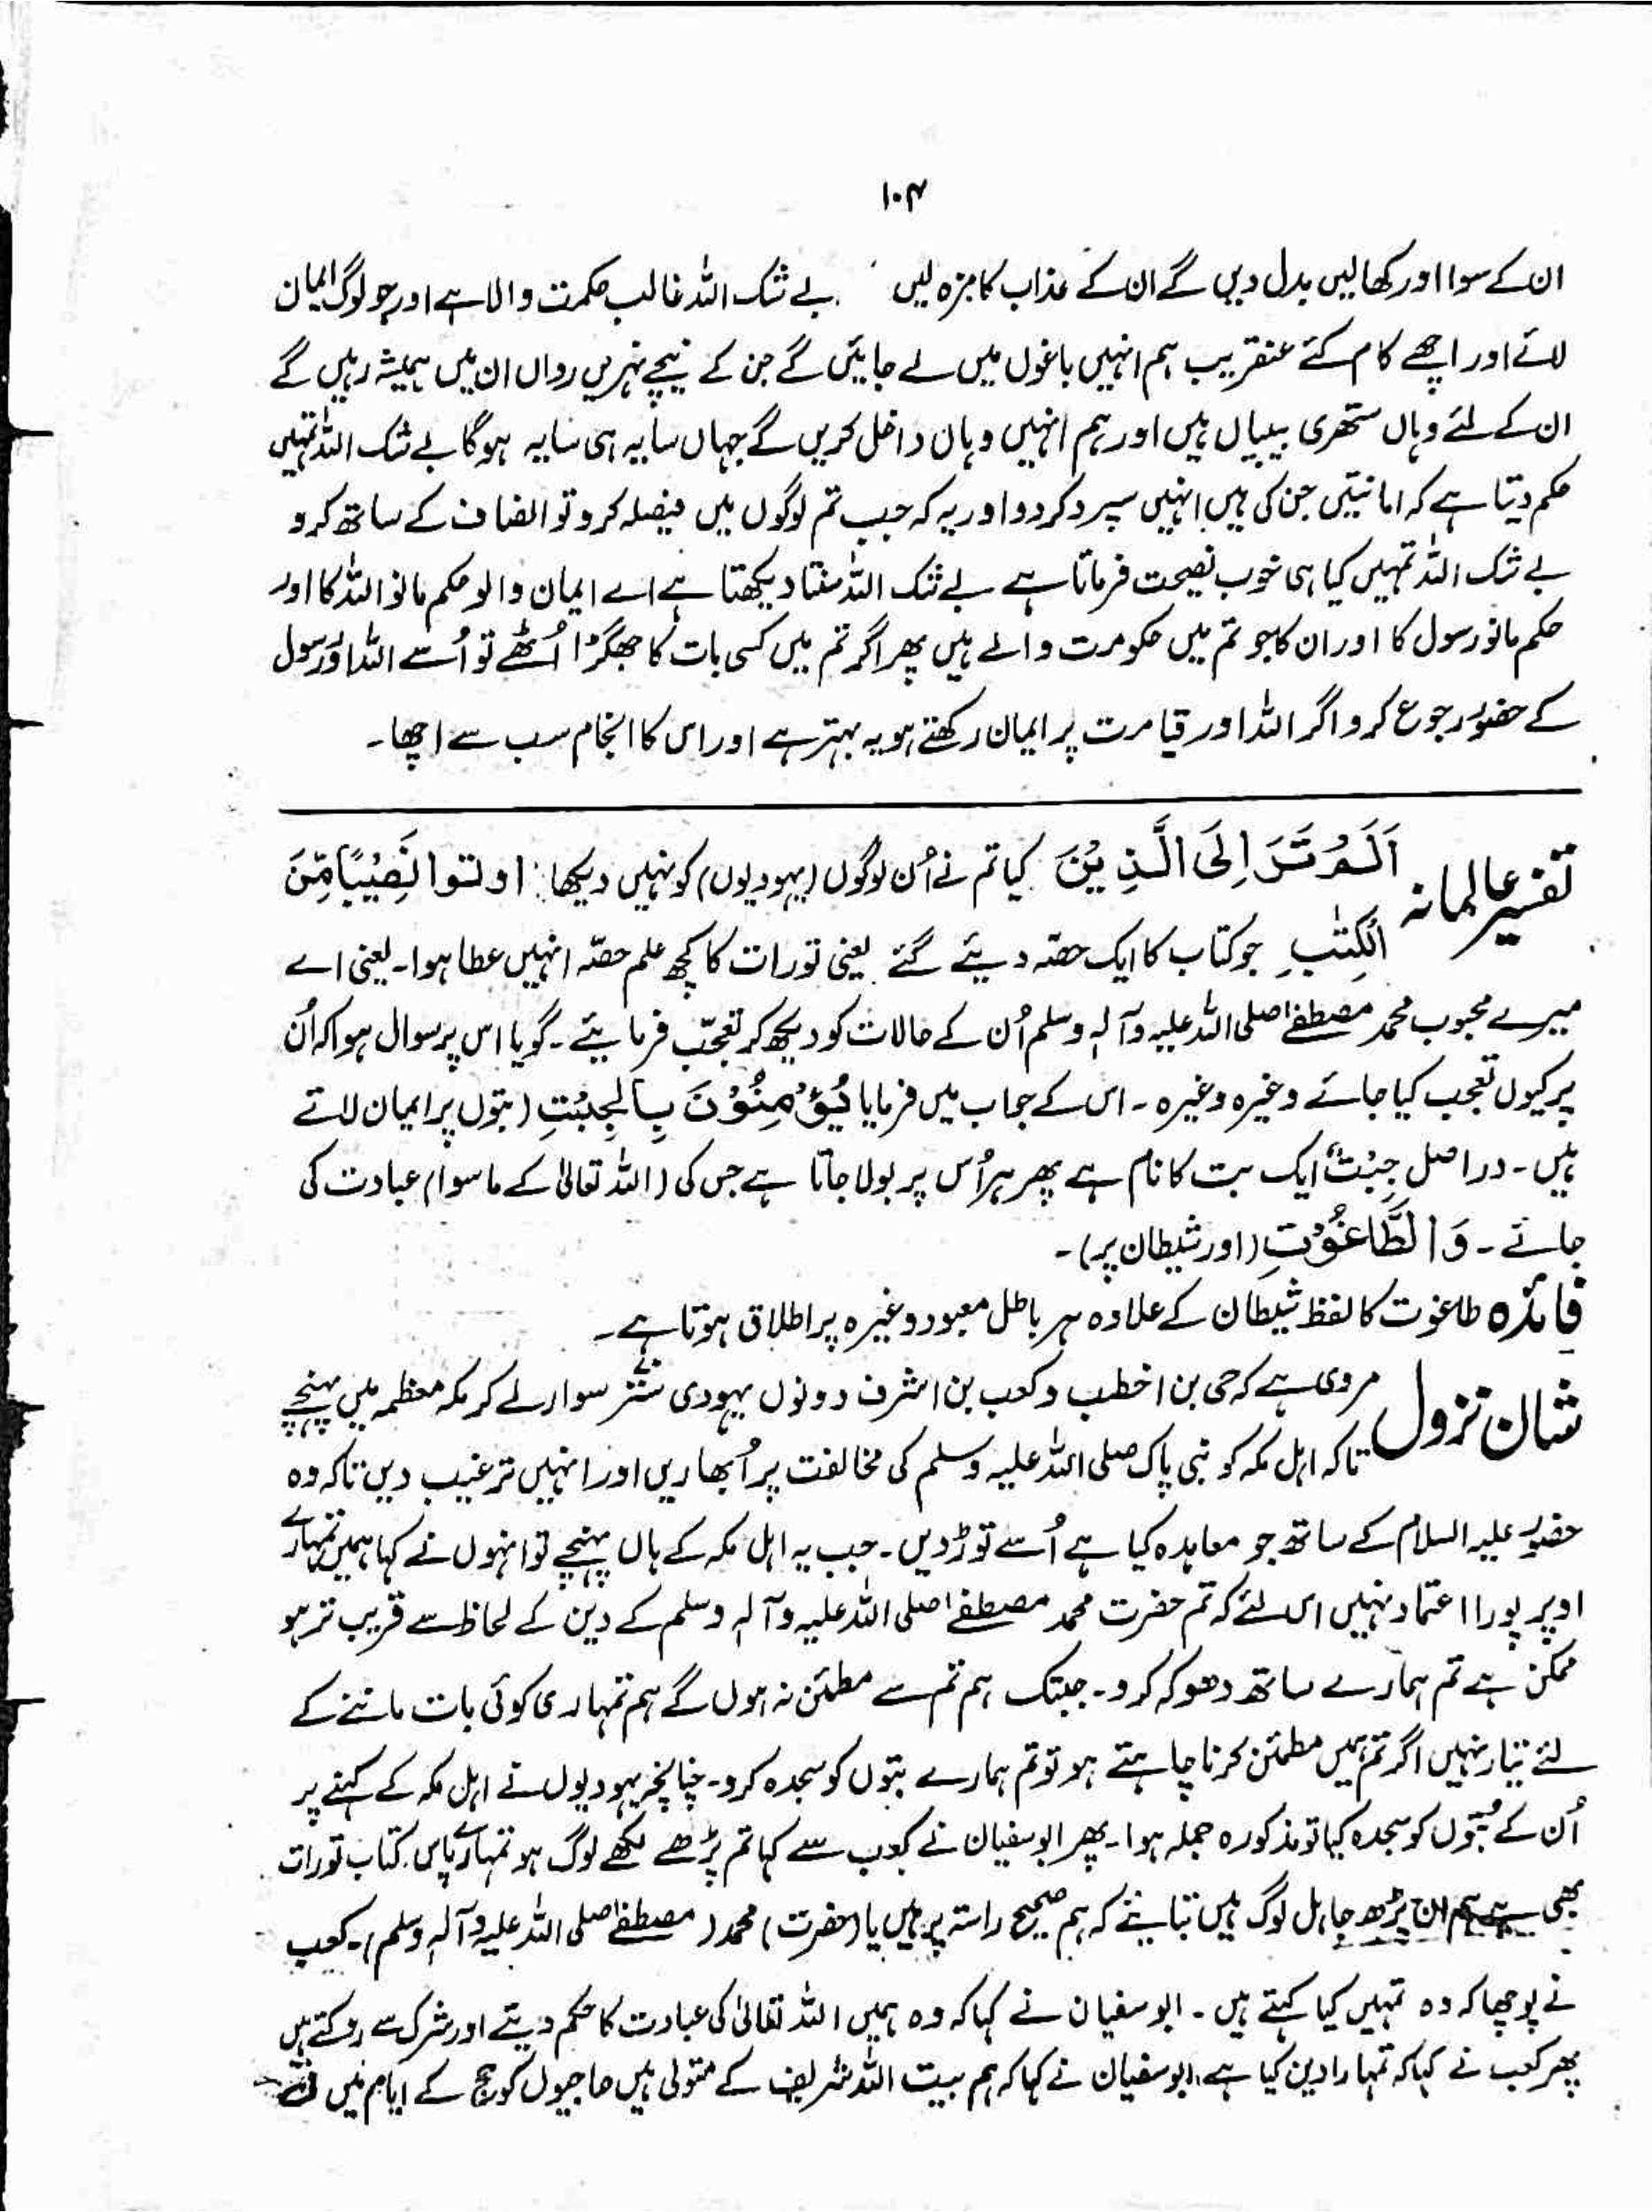 ۱۰۴
ان کے سوا اور کھالیں بدل دیں گے ان کے عذاب کا مزہ لیں بے شک اللہ غالب حکمت والا ہے اور جو لوگ ایمان
لائے اور اچھے کام کئے عنقریب ہم انہیں باغوں میں لے جائیں گے جن کے نیچے نہریں رواں ان میں ہمیشہ رہیں گے
ان کے لئے وہاں ستھری بیبیاں ہیں اور ہم انہیں وہاں داخل کریں گے جہاں سایہ ہی سایہ ہوگا بے شک اللہ تمہیں
حکم دیتا ہے کہ امانتیں جن کی ہیں انہیں سپرد کردو اور یہ کہ جب تم لوگوں میں فیصلہ کرو تو انصاف کے ساتھ کرو
بے شک اللہ تمہیں کیا ہی خوب نصیحت فرماتا ہے بے شک اللہ سنتا دیکھتا ہے اے ایمان والو حکم مانو اللہ کا اور
حکم مانو رسول کا اور ان کا جو تم میں حکومت والے ہیں پھر اگر تم میں کسی بات کا جھگڑا اُٹھے تو اُسے اللہ اور رسول
کے حضور رجوع کرو اگر اللہ اور قیامت پر ایمان رکھتے ہو یہ بہتر ہے اور اس کا انجام سب سے اچھا۔
تفسیر عالمانہ اَلَمْ تَرَ اِلَى الَّذِیْنَ کیا تم نے اُن لوگوں (یہودیوں) کو نہیں دیکھا: اوتوا نَصِیْبًا مِّنَ
الْکِتٰبِ جو کتاب کا ایک حصّہ دیئے گئے یعنی تورات کا کچھ علم حصّہ انہیں عطا ہوا۔ یعنی اے
میرے محبوب محمد مصطفےٰ صلی اللہ علیہ وآلہٖ وسلم اُن کے حالات کو دیکھ کر تعجّب فرمایئے۔ گویا اس پر سوال ہوا کہ اُن
پر کیوں تعجب کیا جائے وغیرہ وغیرہ۔ اس کے جواب میں فرمایا یُؤْمِنُوْنَ بِالْجِبْتِ (بتوں پر ایمان لاتے
ہیں۔ دراصل جِبْتٌ ایک بت کا نام ہے پھر ہر اُس پر بولا جاتا ہے جس کی (اللہ تعالیٰ کے ماسوا) عبادت کی
جائے۔ وَالطَّاغُوْتِ (اور شیطان پر)۔
فائدہ طاغوت کا لفظ شیطان کے علاوہ ہر باطل معبود وغیرہ پر اطلاق ہوتا ہے۔
شان نزول مروی ہے کہ حی بن اخطب و کعب بن اشرف دونوں یہودی ستّر سوار لے کر مکہ معظمہ میں پہنچے
تاکہ اہل مکہ کو نبی پاک صلی اللہ علیہ وسلم کی مخالفت پر اُبھاریں اور انہیں ترغیب دیں تاکہ وہ
حضور علیہ السلام کے ساتھ جو معاہدہ کیا ہے اُسے توڑ دیں۔ جب یہ اہل مکہ کے ہاں پہنچے تو انہوں نے کہا ہمیں تمہارے
اوپر پورا اعتماد نہیں اس لئے کہ تم حضرت محمد مصطفےٰ صلی اللہ علیہ وآلہٖ وسلم کے دین کے لحاظ سے قریب تر ہو
ممکن ہے تم ہمارے ساتھ دھوکہ کرو۔ جبتک ہم تم سے مطمئن نہ ہوں گے ہم تمہاری کوئی بات ماننے کے
لئے تیار نہیں اگر تم ہمیں مطمئن کرنا چاہتے ہو تو تم ہمارے بتوں کو سجدہ کرو۔ چنانچہ یہودیوں نے اہل مکہ کے کہنے پر
اُن کے بُتوں کو سجدہ کیا تو مذکورہ جملہ ہوا۔ پھر ابوسفیان نے کعب سے کہا تم پڑھے لکھے لوگ ہو تمہارے پاس کتاب تورات
بھی ہے ہم ان پڑھ جاہل لوگ ہیں بتایئے کہ ہم صحیح راستہ پر ہیں یا (حضرت) محمد (مصطفےٰ صلی اللہ علیہ وآلہٖ وسلم)۔ کعب
نے پوچھا کہ وہ تمہیں کیا کہتے ہیں۔ ابوسفیان نے کہا کہ وہ ہمیں اللہ تعالیٰ کی عبادت کا حکم دیتے اور شرک سے روکتے ہیں
پھر کعب نے کہا کہ تمہارا دین کیا ہے۔ ابوسفیان نے کہا کہ ہم بیت اللہ شریف کے متولی ہیں حاجیوں کو حج کے ایام میں